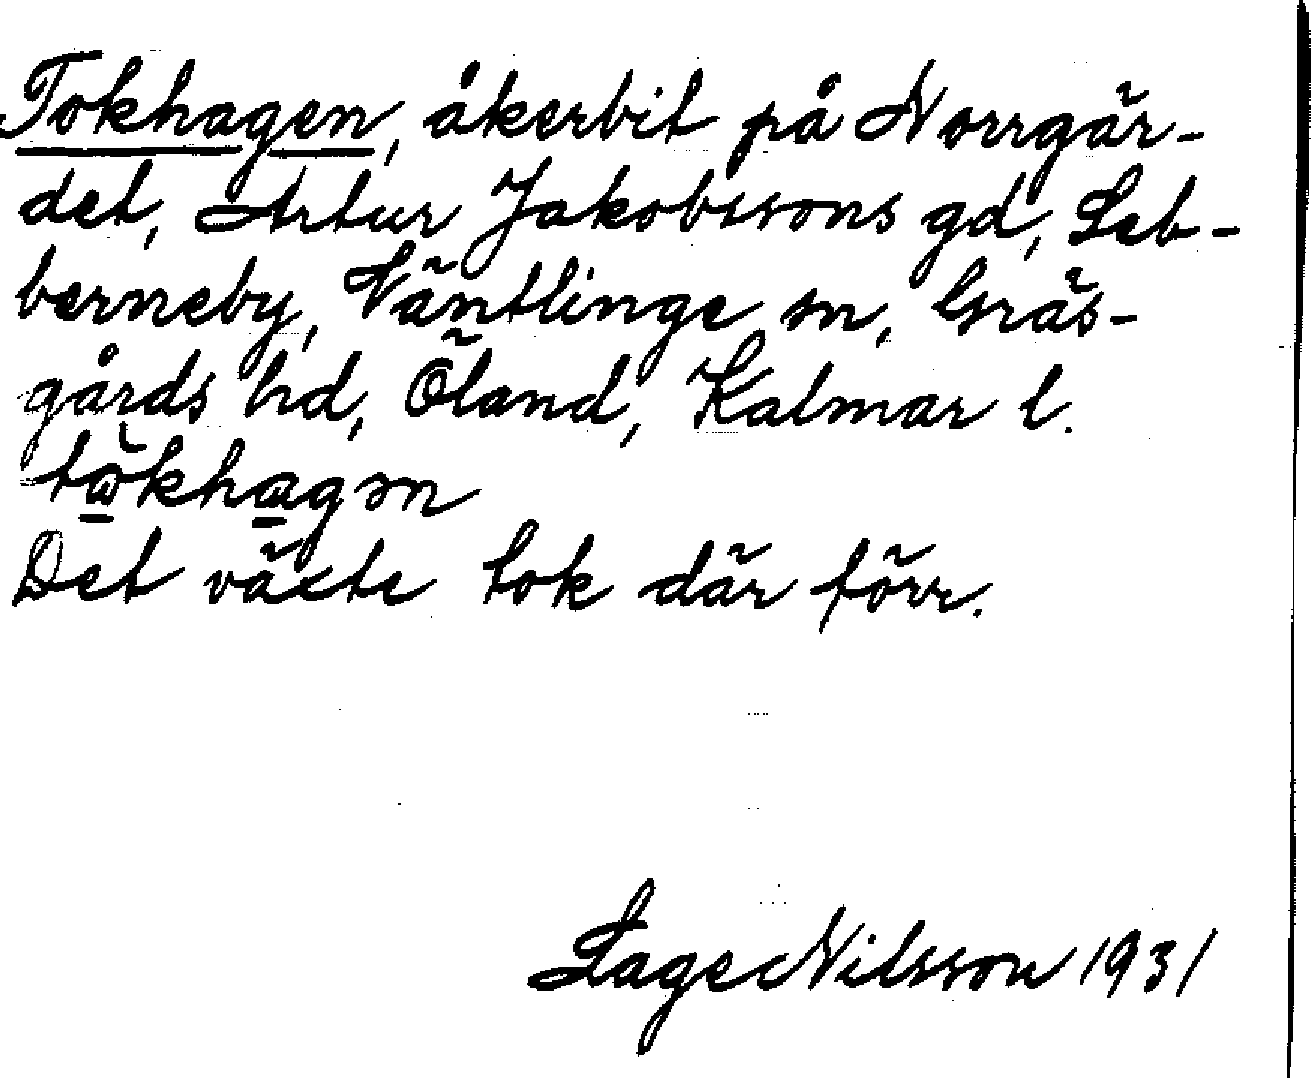 Tokhagen, åkerbit på Norrgär-
det, Artur Jakobssons gd, Seb-
berneby, Ventlinge sn, Gräs-
gårds hd, Öland, Kalmar l.
tωkhagən
Det växte tok där förr.
Lage Nilsson 1931